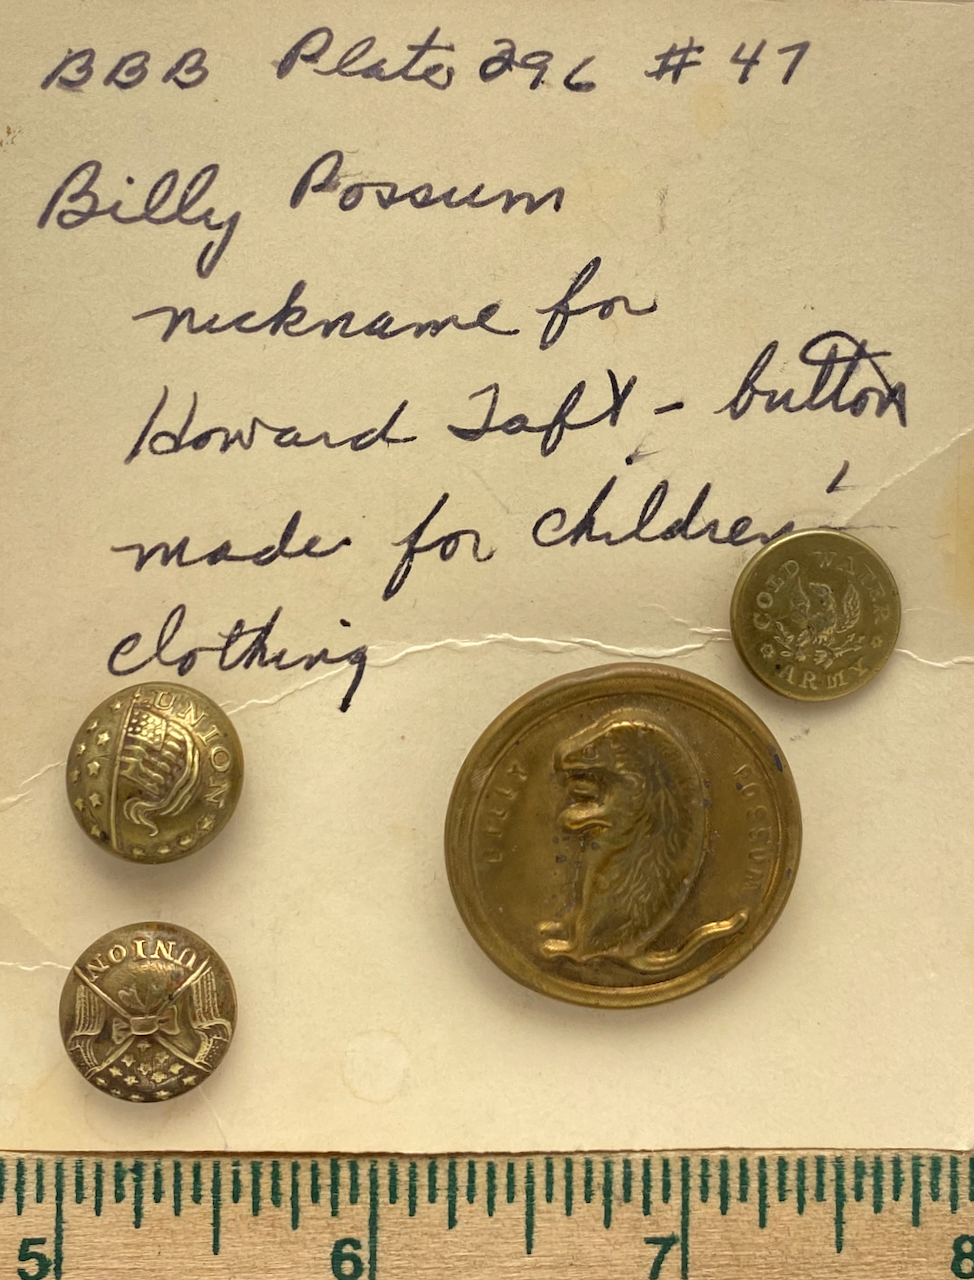 BBB Plate 296 # 47
Billy Possum
nickname for
Howard Taft - button
made for children'
clothing
COLD WATER
ARMY
UNION
BILLY POSSUM
UNION
5 6 7 8